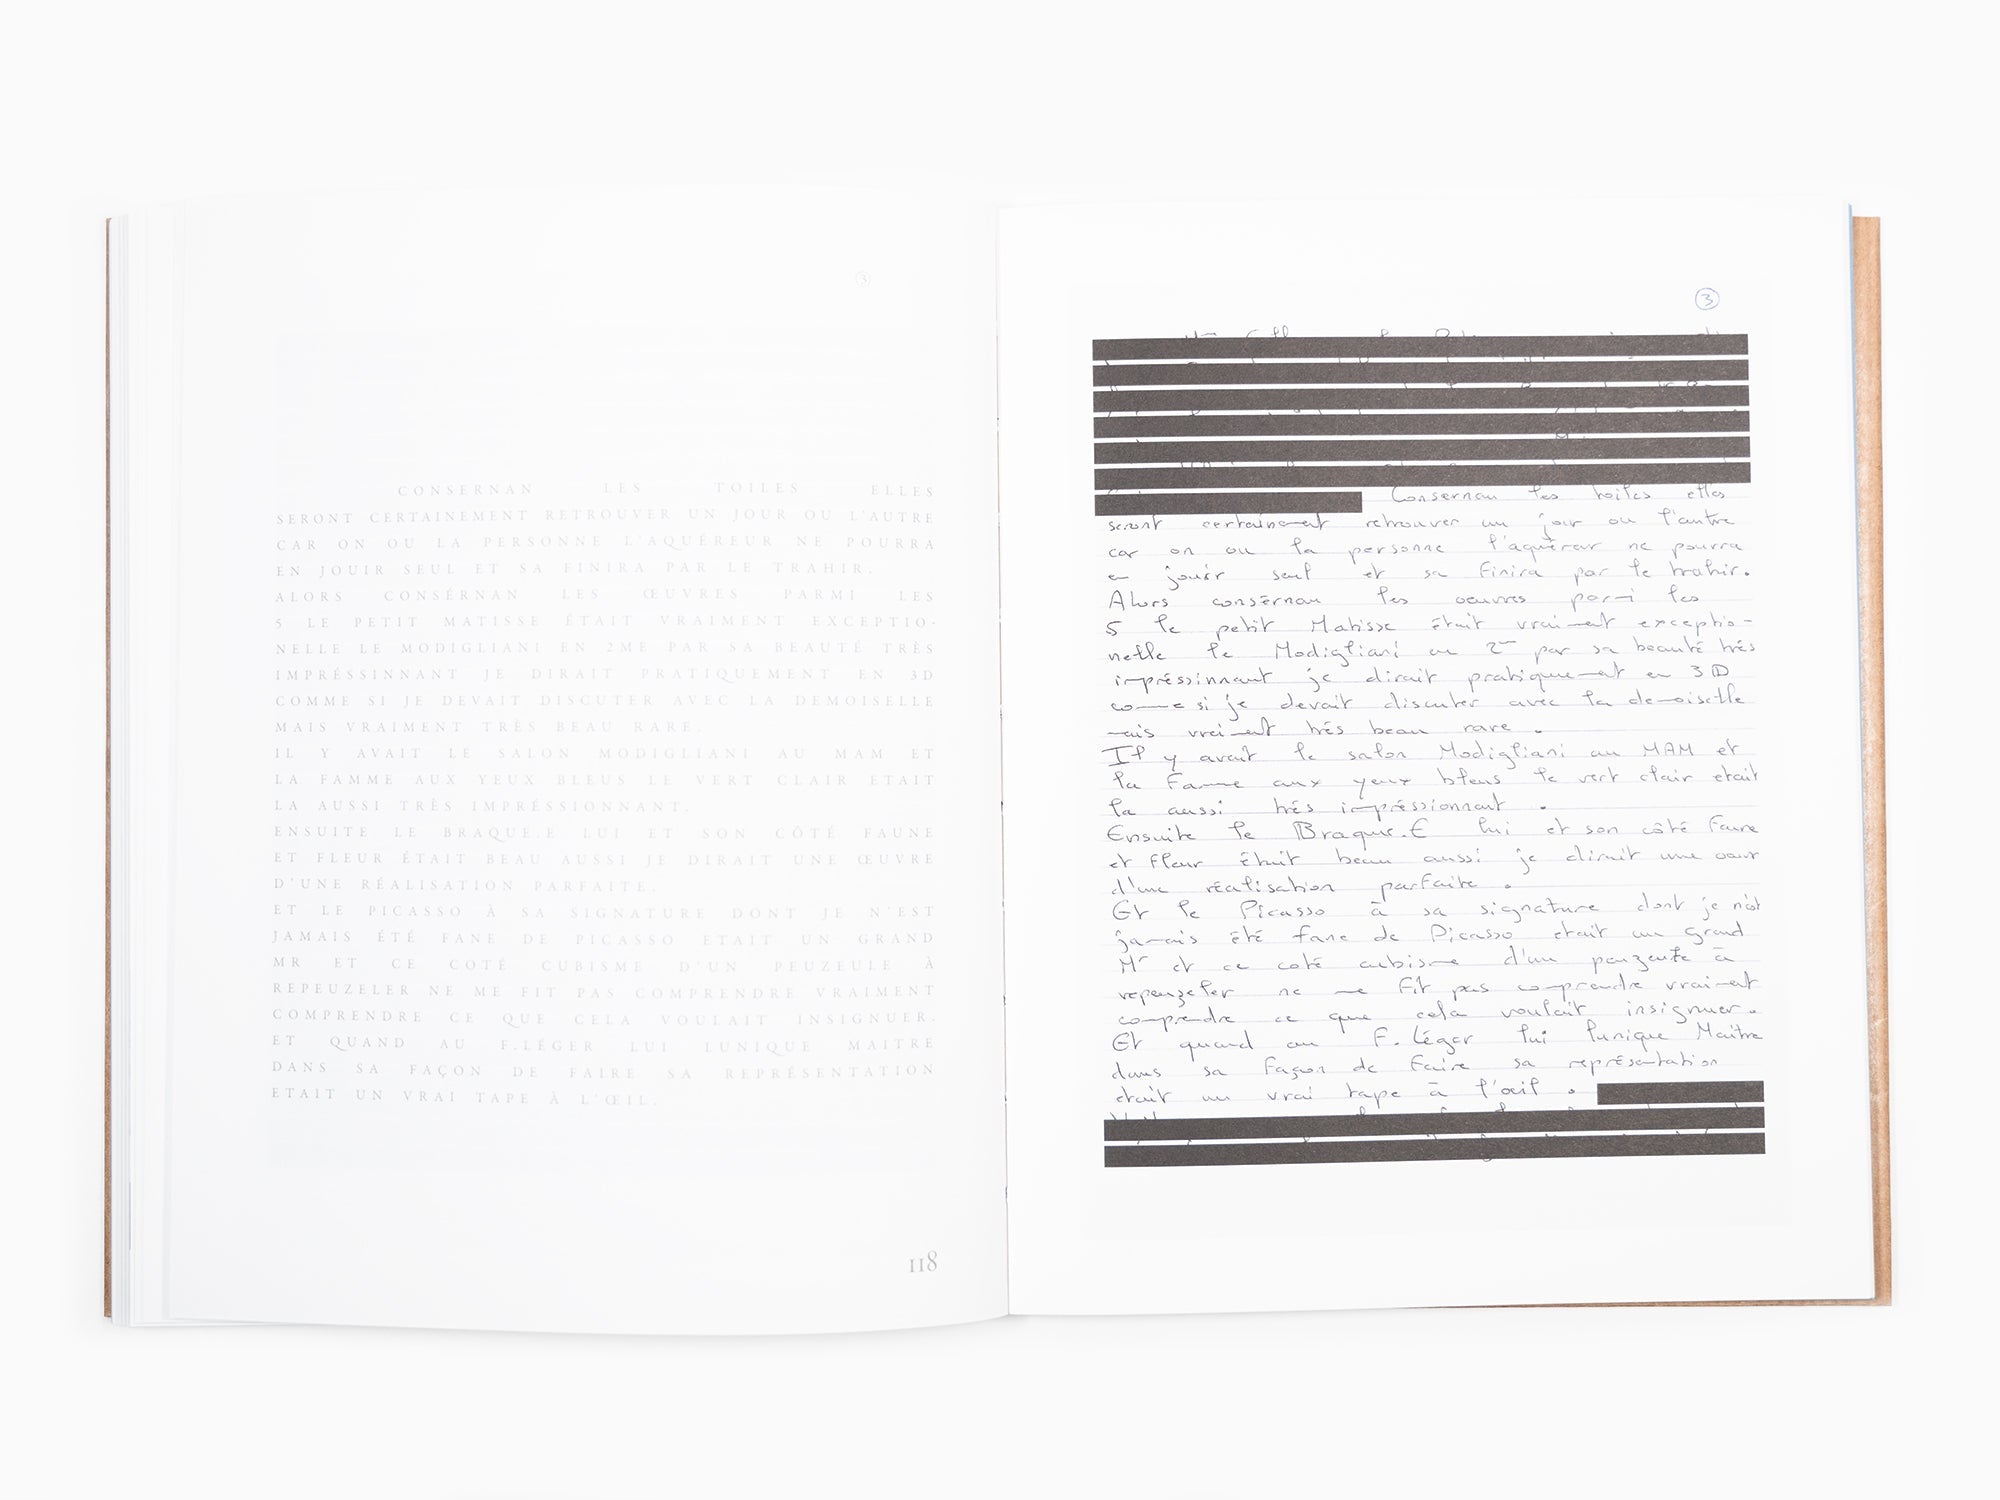 3
CONSERNAN LES TOILES ELLES
SERONT CERTAINEMENT RETROUVER UN JOUR OU L'AUTRE
CAR ON OU LA PERSONNE L'AQUÉREUR NE POURRA
EN JOUIR SEUL ET SA FINIRA PAR LE TRAHIR.
ALORS CONSÉRNAN LES ŒUVRES PARMI LES
5 LE PETIT MATISSE ÉTAIT VRAIMENT EXCEPTIO-
NELLE LE MODIGLIANI EN 2ME PAR SA BEAUTÉ TRÈS
IMPRÉSSINNANT JE DIRAIT PRATIQUEMENT EN 3D
COMME SI JE DEVAIT DISCUTER AVEC LA DEMOISELLE
MAIS VRAIMENT TRÈS BEAU RARE.
IL Y AVAIT LE SALON MODIGLIANI AU MAM ET
LA FAMME AUX YEUX BLEUS LE VERT CLAIR ETAIT
LA AUSSI TRÈS IMPRÉSSIONNANT.
ENSUITE LE BRAQUE.E LUI ET SON CÔTÉ FAUNE
ET FLEUR ÉTAIT BEAU AUSSI JE DIRAIT UNE ŒUVRE
D'UNE RÉALISATION PARFAITE.
ET LE PICASSO À SA SIGNATURE DONT JE N'EST
JAMAIS ÉTÉ FANE DE PICASSO ETAIT UN GRAND
MR ET CE COTÉ CUBISME D'UN PEUZEULE À
REPEUZELER NE ME FIT PAS COMPRENDRE VRAIMENT
COMPRENDRE CE QUE CELA VOULAIT INSIGNUER.
ET QUAND AU F.LÉGER LUI LUNIQUE MAITRE
DANS SA FAÇON DE FAIRE SA REPRÉSENTATION
ETAIT UN VRAI TAPE À L'ŒIL.
118
3
Consernan les toiles elles
seront certainement retrouver un jour ou l'autre
car on ou la personne l'aquéreur ne pourra
en jouir seul et sa finira par le trahir.
Alors consérnan les oeuvres parmi les
5 le petit Matisse était vraiment exceptio-
nelle le Modigliani en 2me par sa beauté trés
impréssinnant je dirait pratiquement en 3D
comme si je devait discuter avec la demoiselle
mais vraiment trés beau rare.
Il y avait le salon Modigliani au MAM et
la Famme aux yeux bleus le vert clair etait
la aussi trés impréssionnant.
Ensuite le Braque.E lui et son côté Faune
et fleur était beau aussi je dirait une
d'une réalisation parfaite.
Et le Picasso à sa signature dont je n'est
jamais été fane de Picasso etait un grand
Mr et ce coté cubisme d'un peuzeule à
repeuzeler ne me fit pas comprendre vraiment
comprendre ce que cela voulait insignuer.
Et quand au F. Léger lui lunique Maitre
dans sa façon de Faire sa représentation
etait un vrai tape à l'oeil.